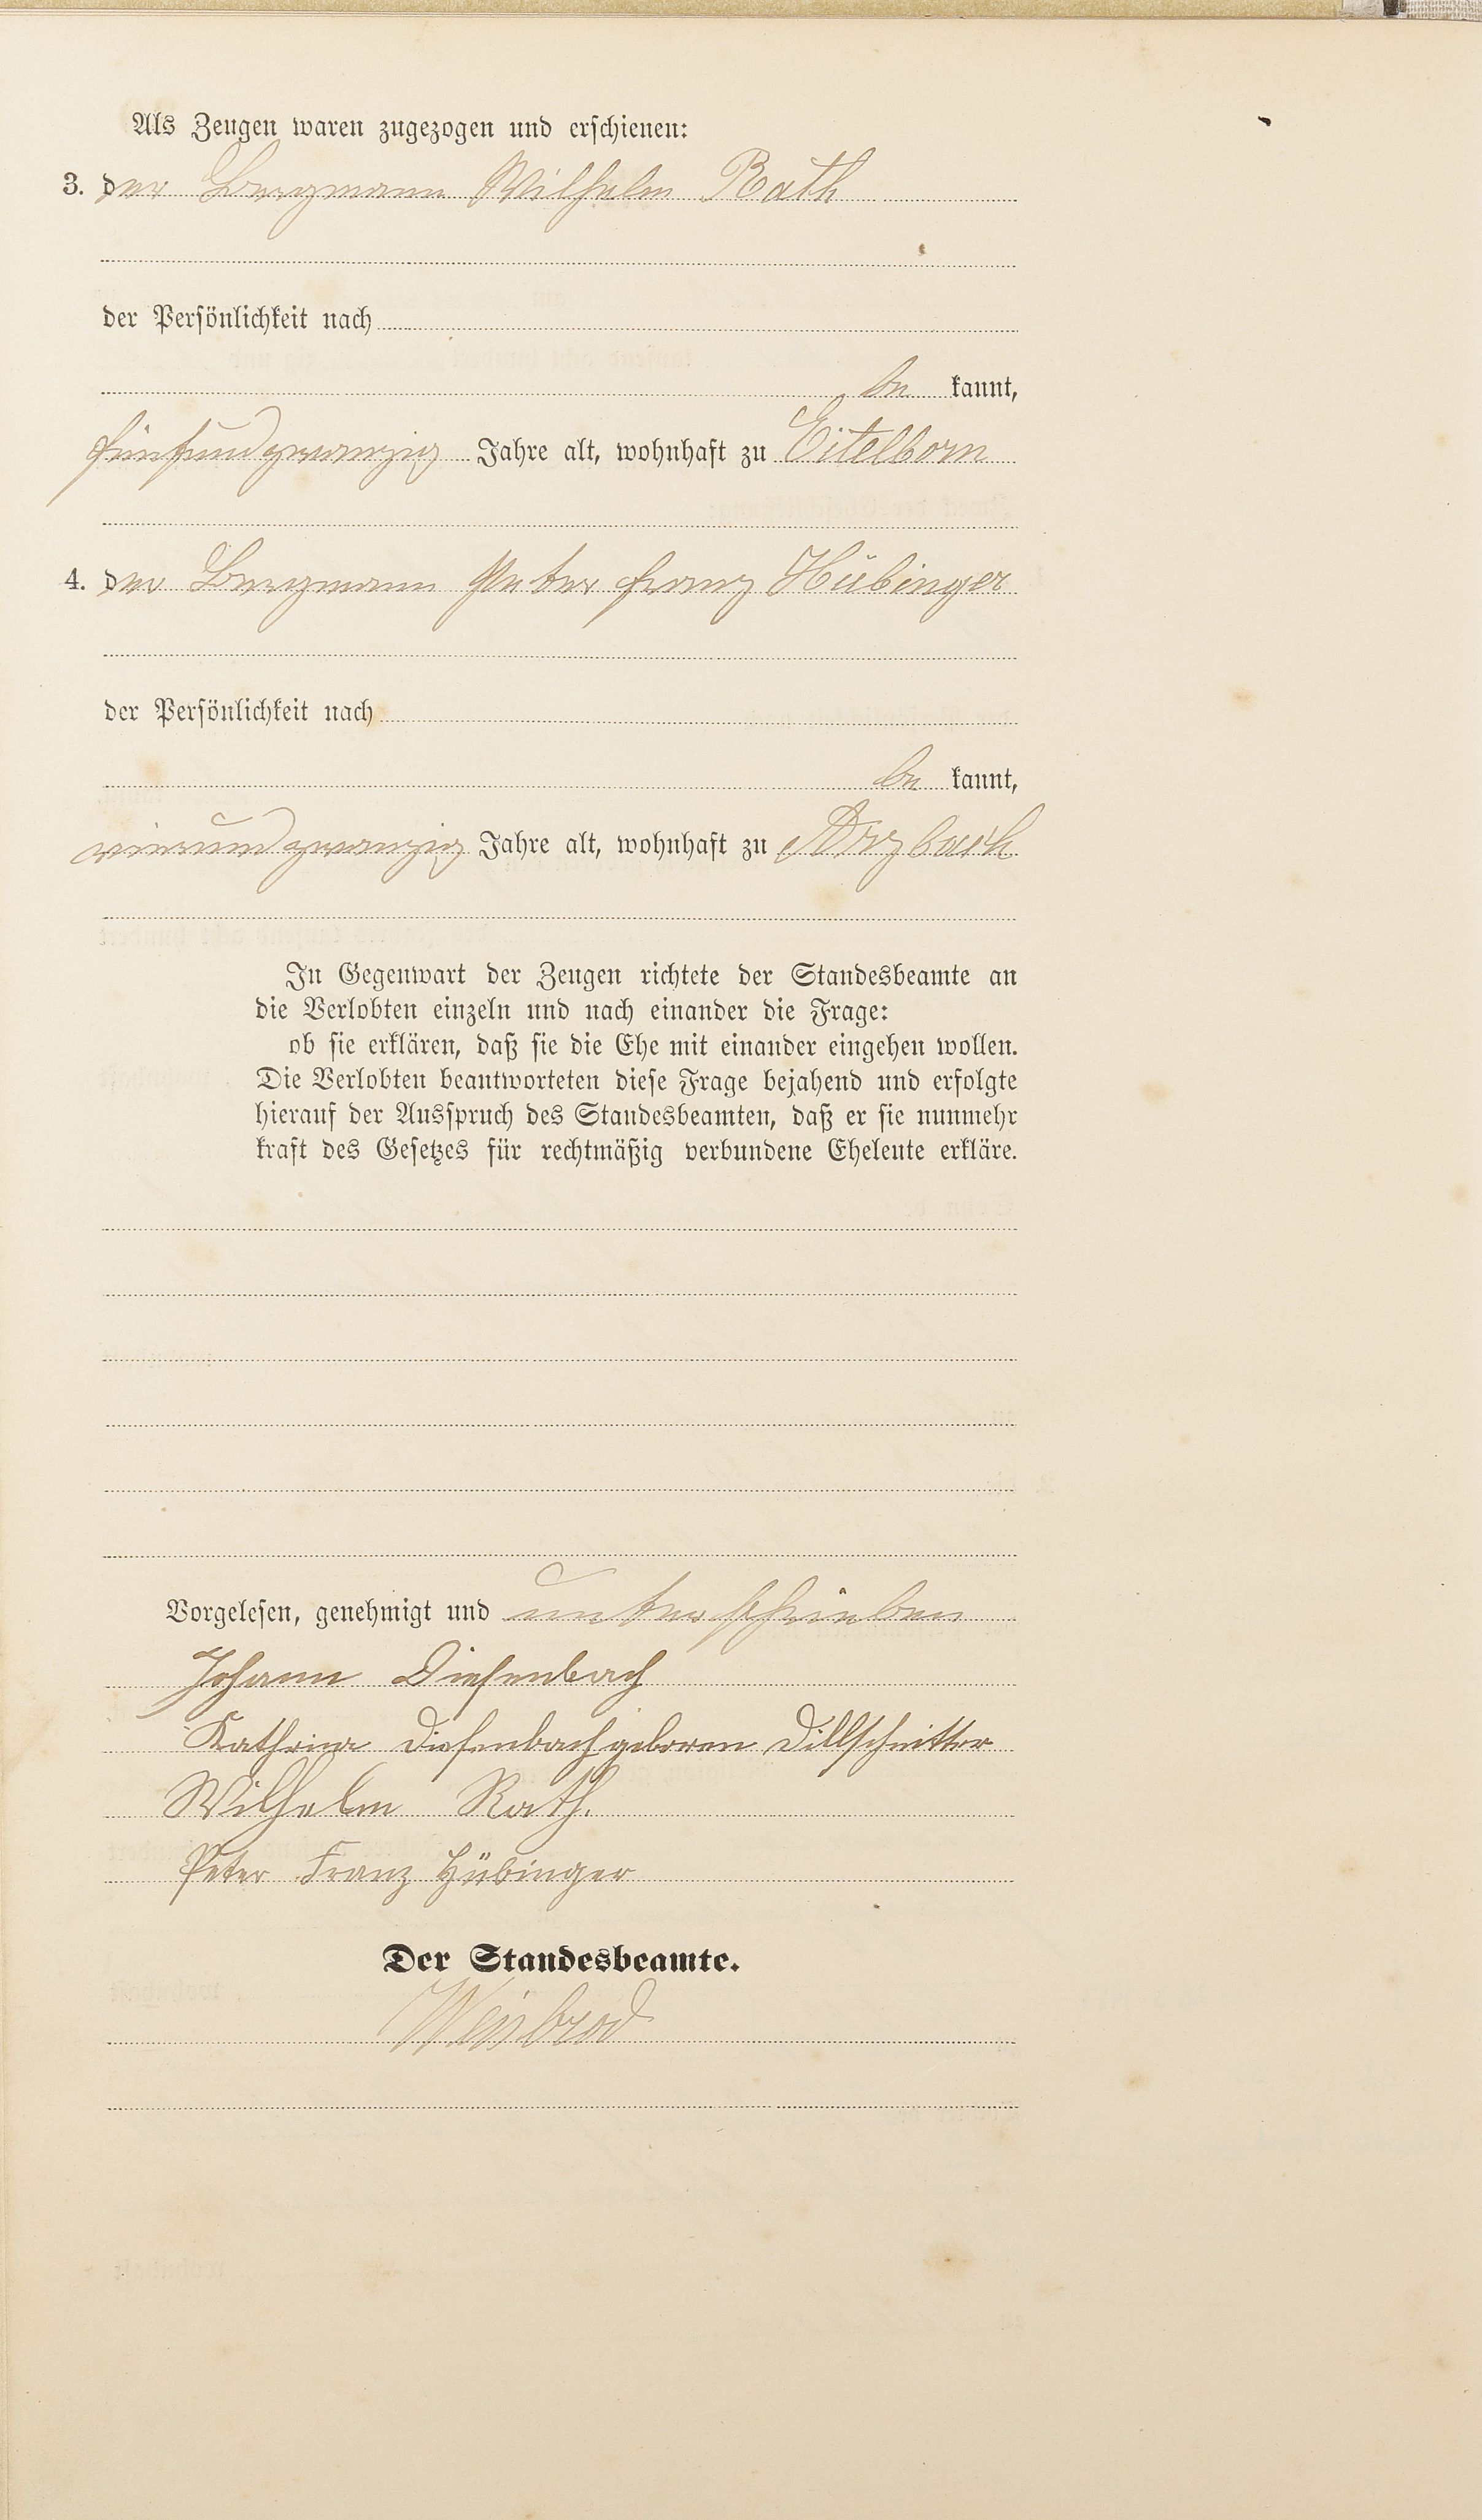 Als Zeugen waren zugezogen und erschienen:
3. der Bergmann Wilhelm Rath
der Persönlichkeit nach
be kannt,
fünfundzwanzig Jahre alt, wohnhaft zu Eitelborn
4. der Bergmann Peter Franz Hübinger
der Persönlichkeit nach
be kannt,
vierundzwanzig Jahre alt, wohnhaft zu Arzbach
In Gegenwart der Zeugen richtete der Standesbeamte an
die Verlobten einzeln und nach einander die Frage:
ob sie erklären, daß sie die Ehe mit einander eingehen wollen.
Die Verlobten beantworteten diese Frage bejahend und erfolgte
hierauf der Ausspruch des Standesbeamten, daß er sie nunmehr
kraft des Gesetzes für rechtmäßig verbundene Eheleute erkläre.
Vorgelesen, genehmigt und unterschrieben
Johann Diefenbach
Kathrina Diefenbach geboren Dillschnitter
Wilhelm Rath.
Peter Franz Hübinger
Der Standesbeamte.
Weisbrod